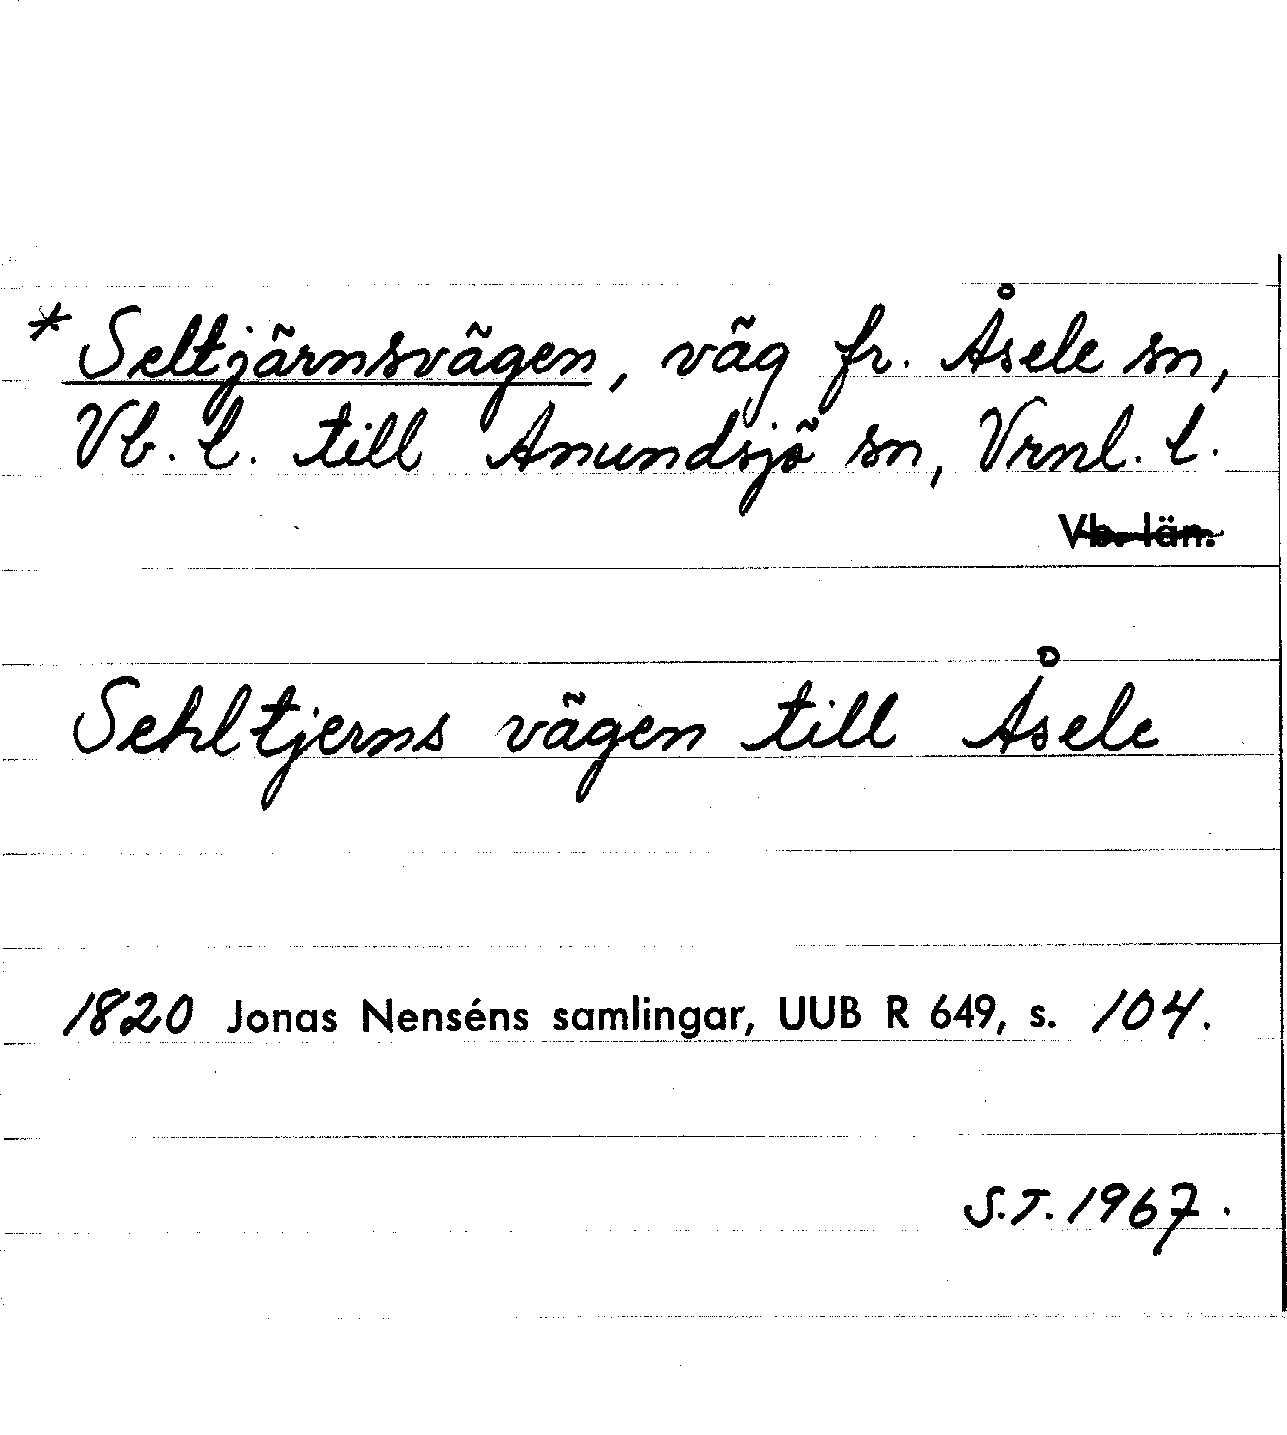 * Seltjärnsvägen, väg fr. Åsele sn,
Vb. l. till Anundsjö sn, Vrnl. l.
Vb. län.
Sehltjerns vägen till Åsele
1820 Jonas Nenséns samlingar, UUB R 649, s. 104.
S.T. 1967.